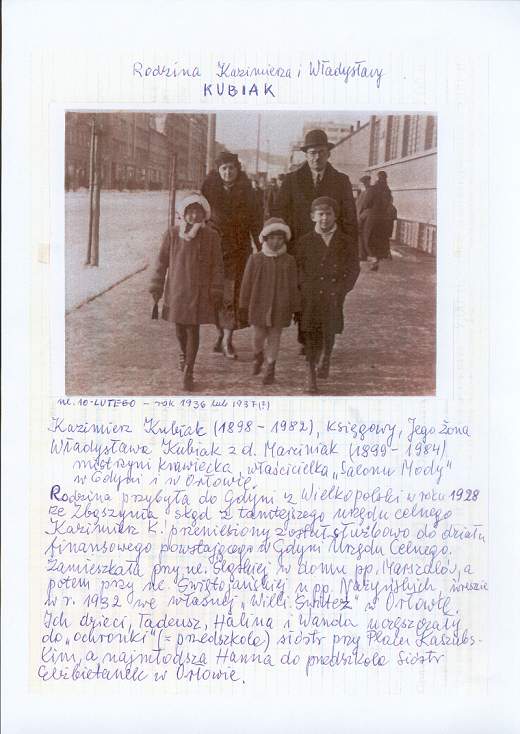 Rodzina Kazimierza i Władysławy
KUBIAK
ul. 10-LUTEGO – rok 1936 lub 1937(?)
Kazimierz Kubiak (1898 – 1982), księgowy, Jego żona
Władysława Kubiak z d. Marciniak (1899 – 1984)
mistrzyni krawiecka, właścicielka „Salonu Mody"
w Gdyni i w Orłowie.
Rodzina przybyła do Gdyni z Wielkopolski w roku 1928
ze Zbąszynia skąd z tamtejszego urzędu celnego
Kazimierz K. przeniesiony został służbowo do działu
finansowego powstającego w Gdyni Urzędu Celnego.
Zamieszkała przy ul. Śląskiej w domu pp. Marszałów, a
potem przy ul. Świętojańskiej u pp. Nażyńskich, wreszcie
w r. 1932 we własnej „Willi Świtez" w Orłowie.
Ich dzieci, Tadeusz, Halina i Wanda uczęszczały
do „ochronki" (= przedszkola) sióstr przy Placu Kaszubs-
kim, a najmłodsza Hanna do przedszkola Sióstr
Elżbietanek w Orłowie.